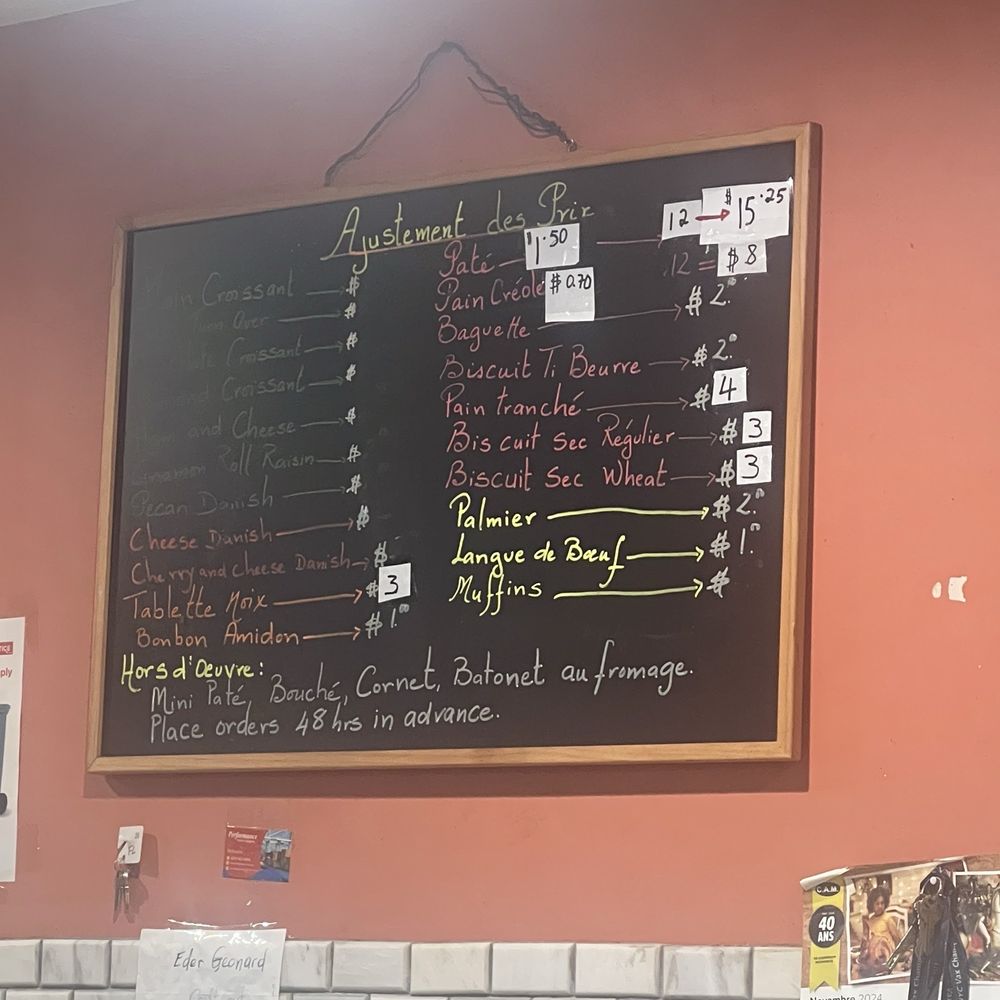 Ajustement des Prix
Croissant → $
Over → $
Croissant → $
Croissant → $
and Cheese → $
Roll Raisin → $
Pecan Danish → $
Cheese Danish → $
Cherry and Cheese Danish → $
Tablette Noix → $ 3
Bonbon Amidon → $ 1.00
Paté — $1.50 — 12 → $15.25
Pain Créole $0.70 12 = $8
Baguette → $ 2.00
Biscuit Ti Beurre → $ 2.00
Pain tranché → $ 4
Biscuit Sec Régulier → $ 3
Biscuit Sec Wheat → $ 3
Palmier → $ 2.00
Langue de Bœuf → $ 1.00
Muffins → $
Hors d'Œuvre:
Mini Paté, Bouché, Cornet, Batonet au fromage.
Place orders 48 hrs in advance.
ply
Performance
C.A.M.
40
ANS
Eder Geonard
Novembre 2024